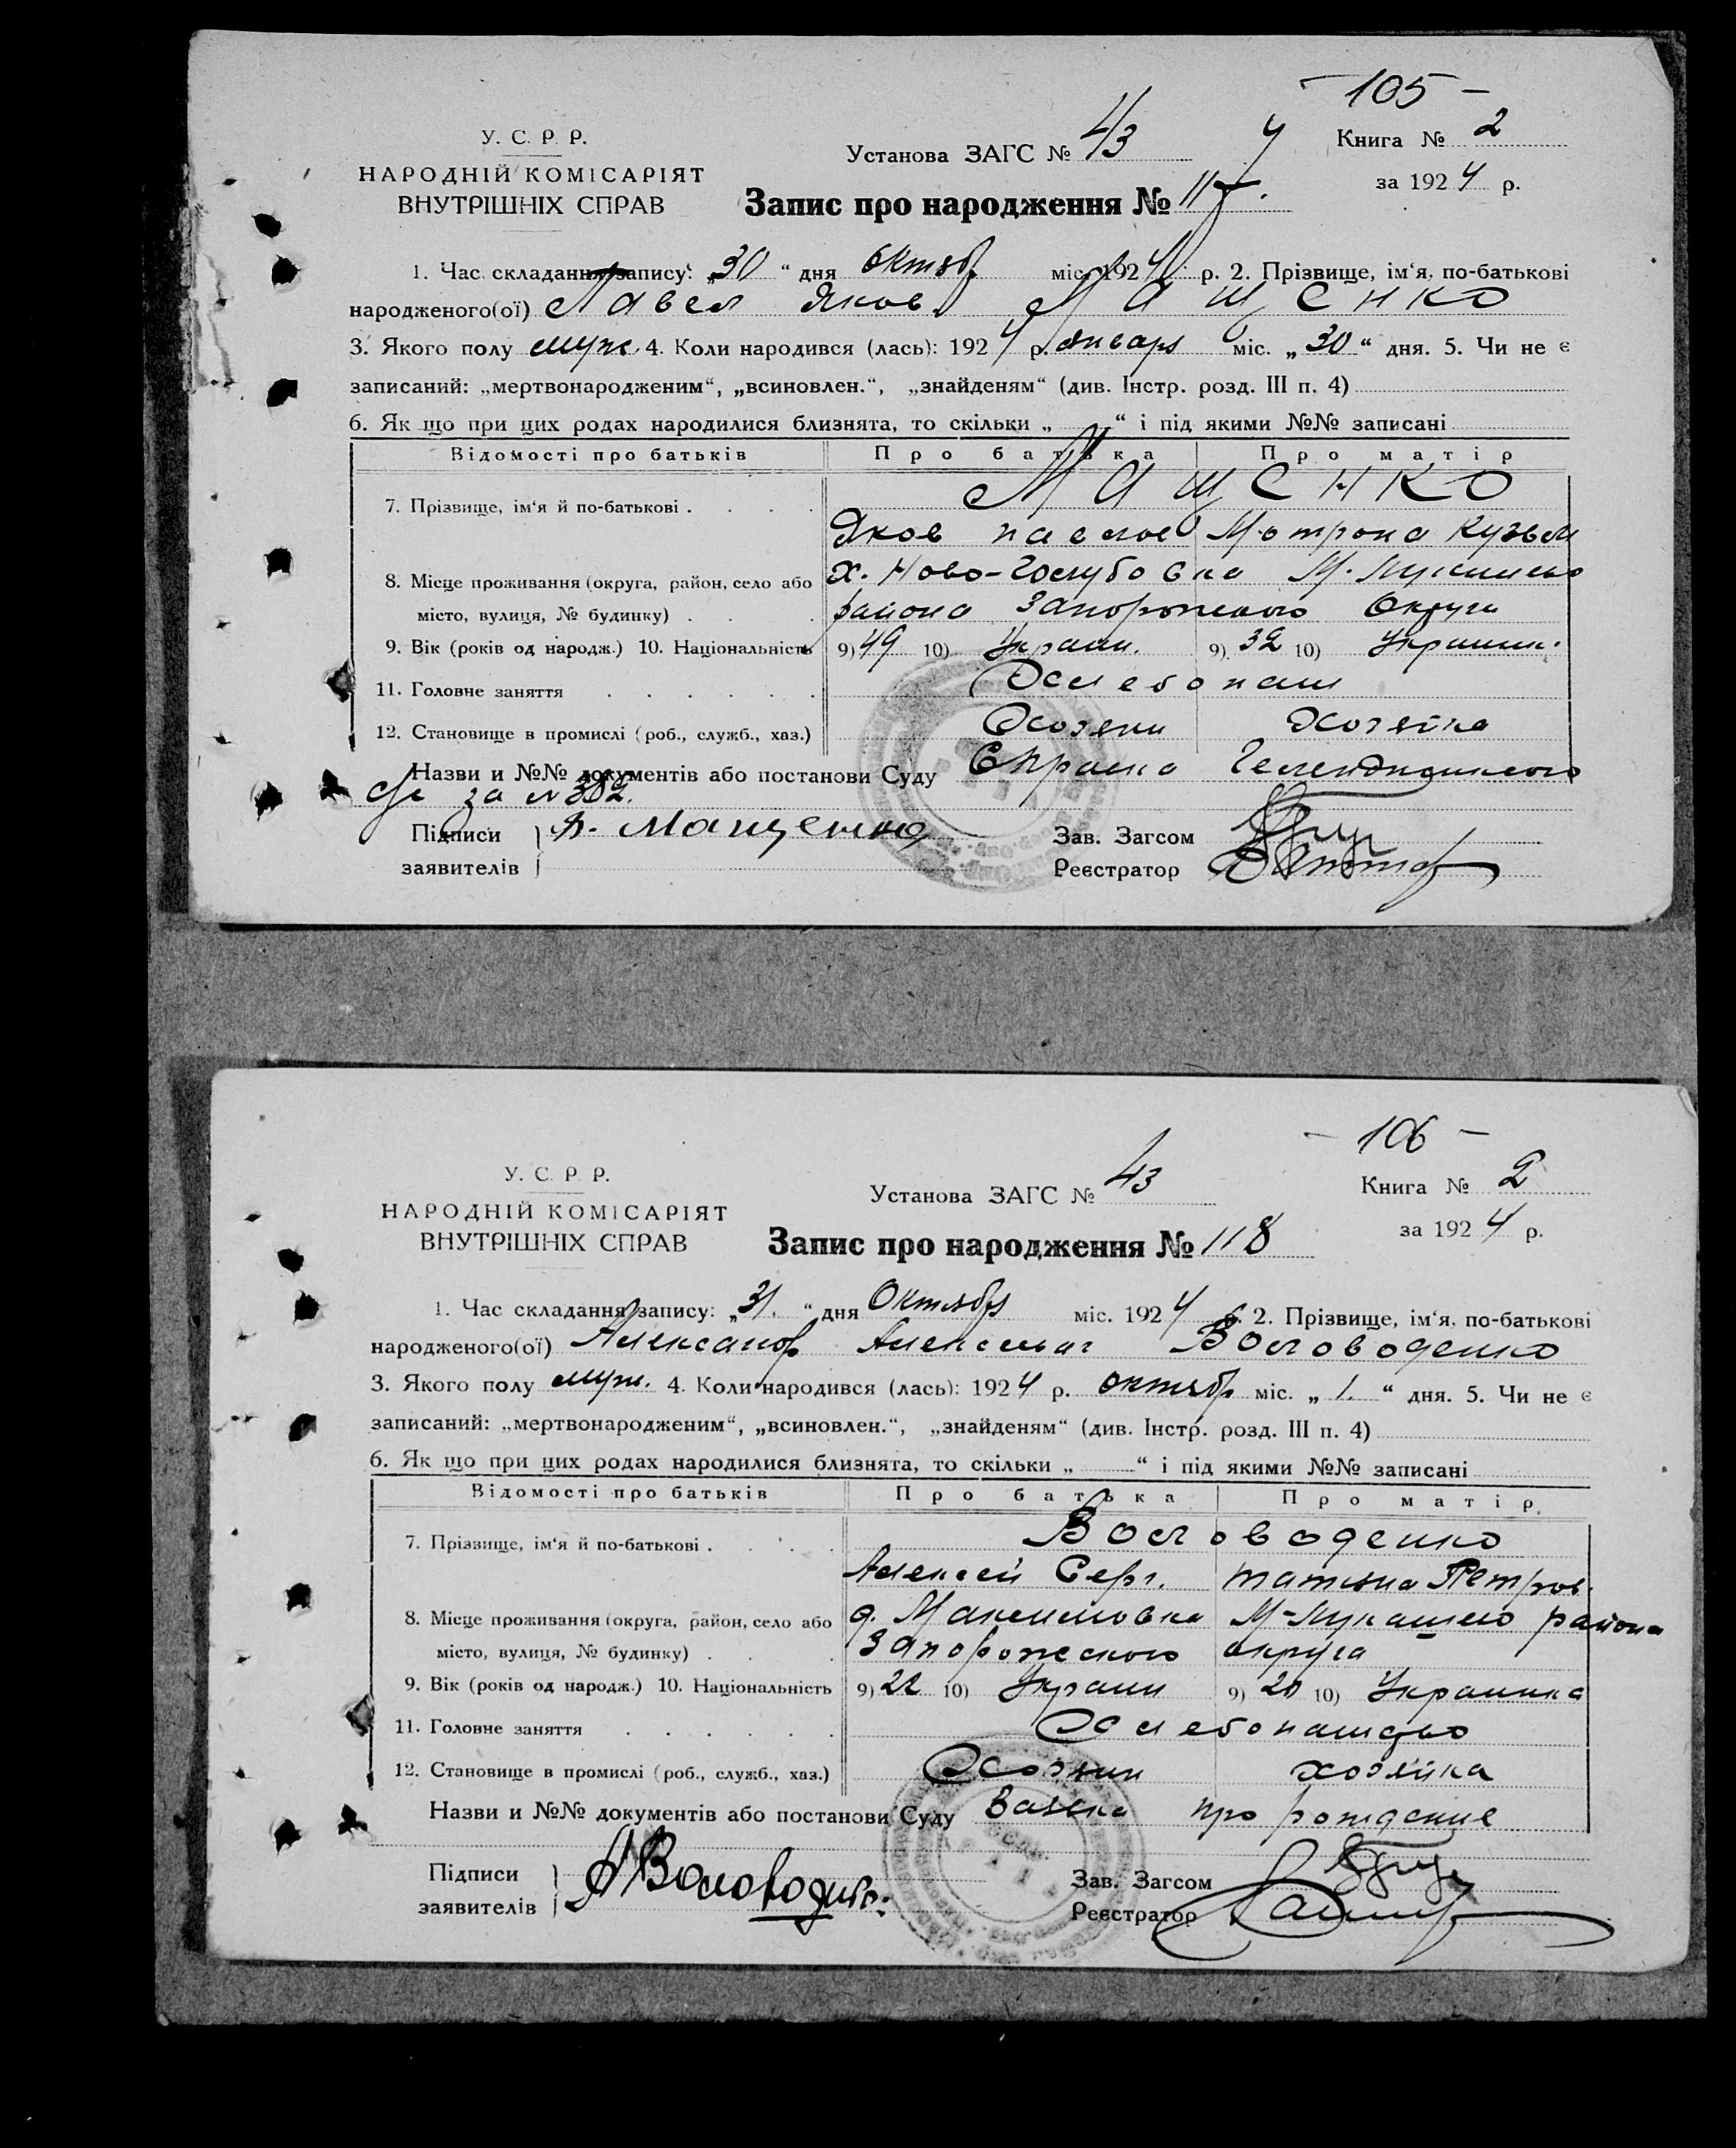 - 105 -
У. С. Р. Р.
НАРОДНІЙ КОМІСАРІЯТ
ВНУТРІШНІХ СПРАВ
Установа ЗАГС № 43
Книга № 2
за 1924 р.
Запис про народження № 117.
1. Час складання запису: „30“ дня октяб міс. 1924 р. 2. Прізвище, ім‘я, по-батькові
народженого(ої) Павел Яков. Мащенко
3. Якого полу муж. 4. Коли народився (лась): 1924 р. январь міс. „30“ дня. 5. Чи не є
записаний: „мертвонародженим“, „всиновлен.“, „знайденям“ (див. Інстр. розд. III п. 4)
6. Як що при цих родах народилися близнята, то скільки „ “ і під якими №№ записані
Відомості про батьків Про батька Про матір
7. Прізвище, ім‘я й по-батькові . . . . Мащенко
Яков павлов Мотрона Кузьм
8. Місце проживання (округа, район, село або х. Ново-Голубовка М-Лукашево
місто, вулиця, № будинку) . . . района Запорожского Округи
9. Вік (років од народж.) 10. Національність 9) 49 10) Украин. 9) 32 10) Украинк.
11. Головне заняття . . . . . . Хлебопаш
12. Становище в промислі (роб., служб., хаз.) Хозяин Хозяйка
Назви и №№ документів або постанови Суду Справка
за № 382.
Підписи Мащенко Зав. Загсом
заявителів Реєстратор
- 106 -
У. С. Р. Р.
НАРОДНІЙ КОМІСАРІЯТ
ВНУТРІШНІХ СПРАВ
Установа ЗАГС № 43
Книга № 2
за 1924 р.
Запис про народження № 118
1. Час складання запису: „31.“ дня Октябр міс. 1924 р. 2. Прізвище, ім‘я, по-батькові
народженого(ої) Александр Воловоденко
3. Якого полу муж. 4. Коли народився (лась): 1924 р. октябр міс. „1.“ дня. 5. Чи не є
записаний: „мертвонародженим“, „всиновлен.“, „знайденям“ (див. Інстр. розд. III п. 4)
6. Як що при цих родах народилися близнята, то скільки „ “ і під якими №№ записані
Відомості про батьків Про батька Про матір
7. Прізвище, ім‘я й по-батькові . . . . Воловоденко
Алексей Серг. татьяна Петров.
8. Місце проживання (округа, район, село або д. Максимовка М-Лукашево района
місто, вулиця, № будинку) . . . Запорожского округа
9. Вік (років од народж.) 10. Національність 9) 22 10) Украин 9) 20 10) Украинка
11. Головне заняття . . . . . . Хлебопашство
12. Становище в промислі (роб., служб., хаз.) Хозяин хозяйка
Назви и №№ документів або постанови Суду про рождение
Підписи Зав. Загсом
заявителів Реєстратор